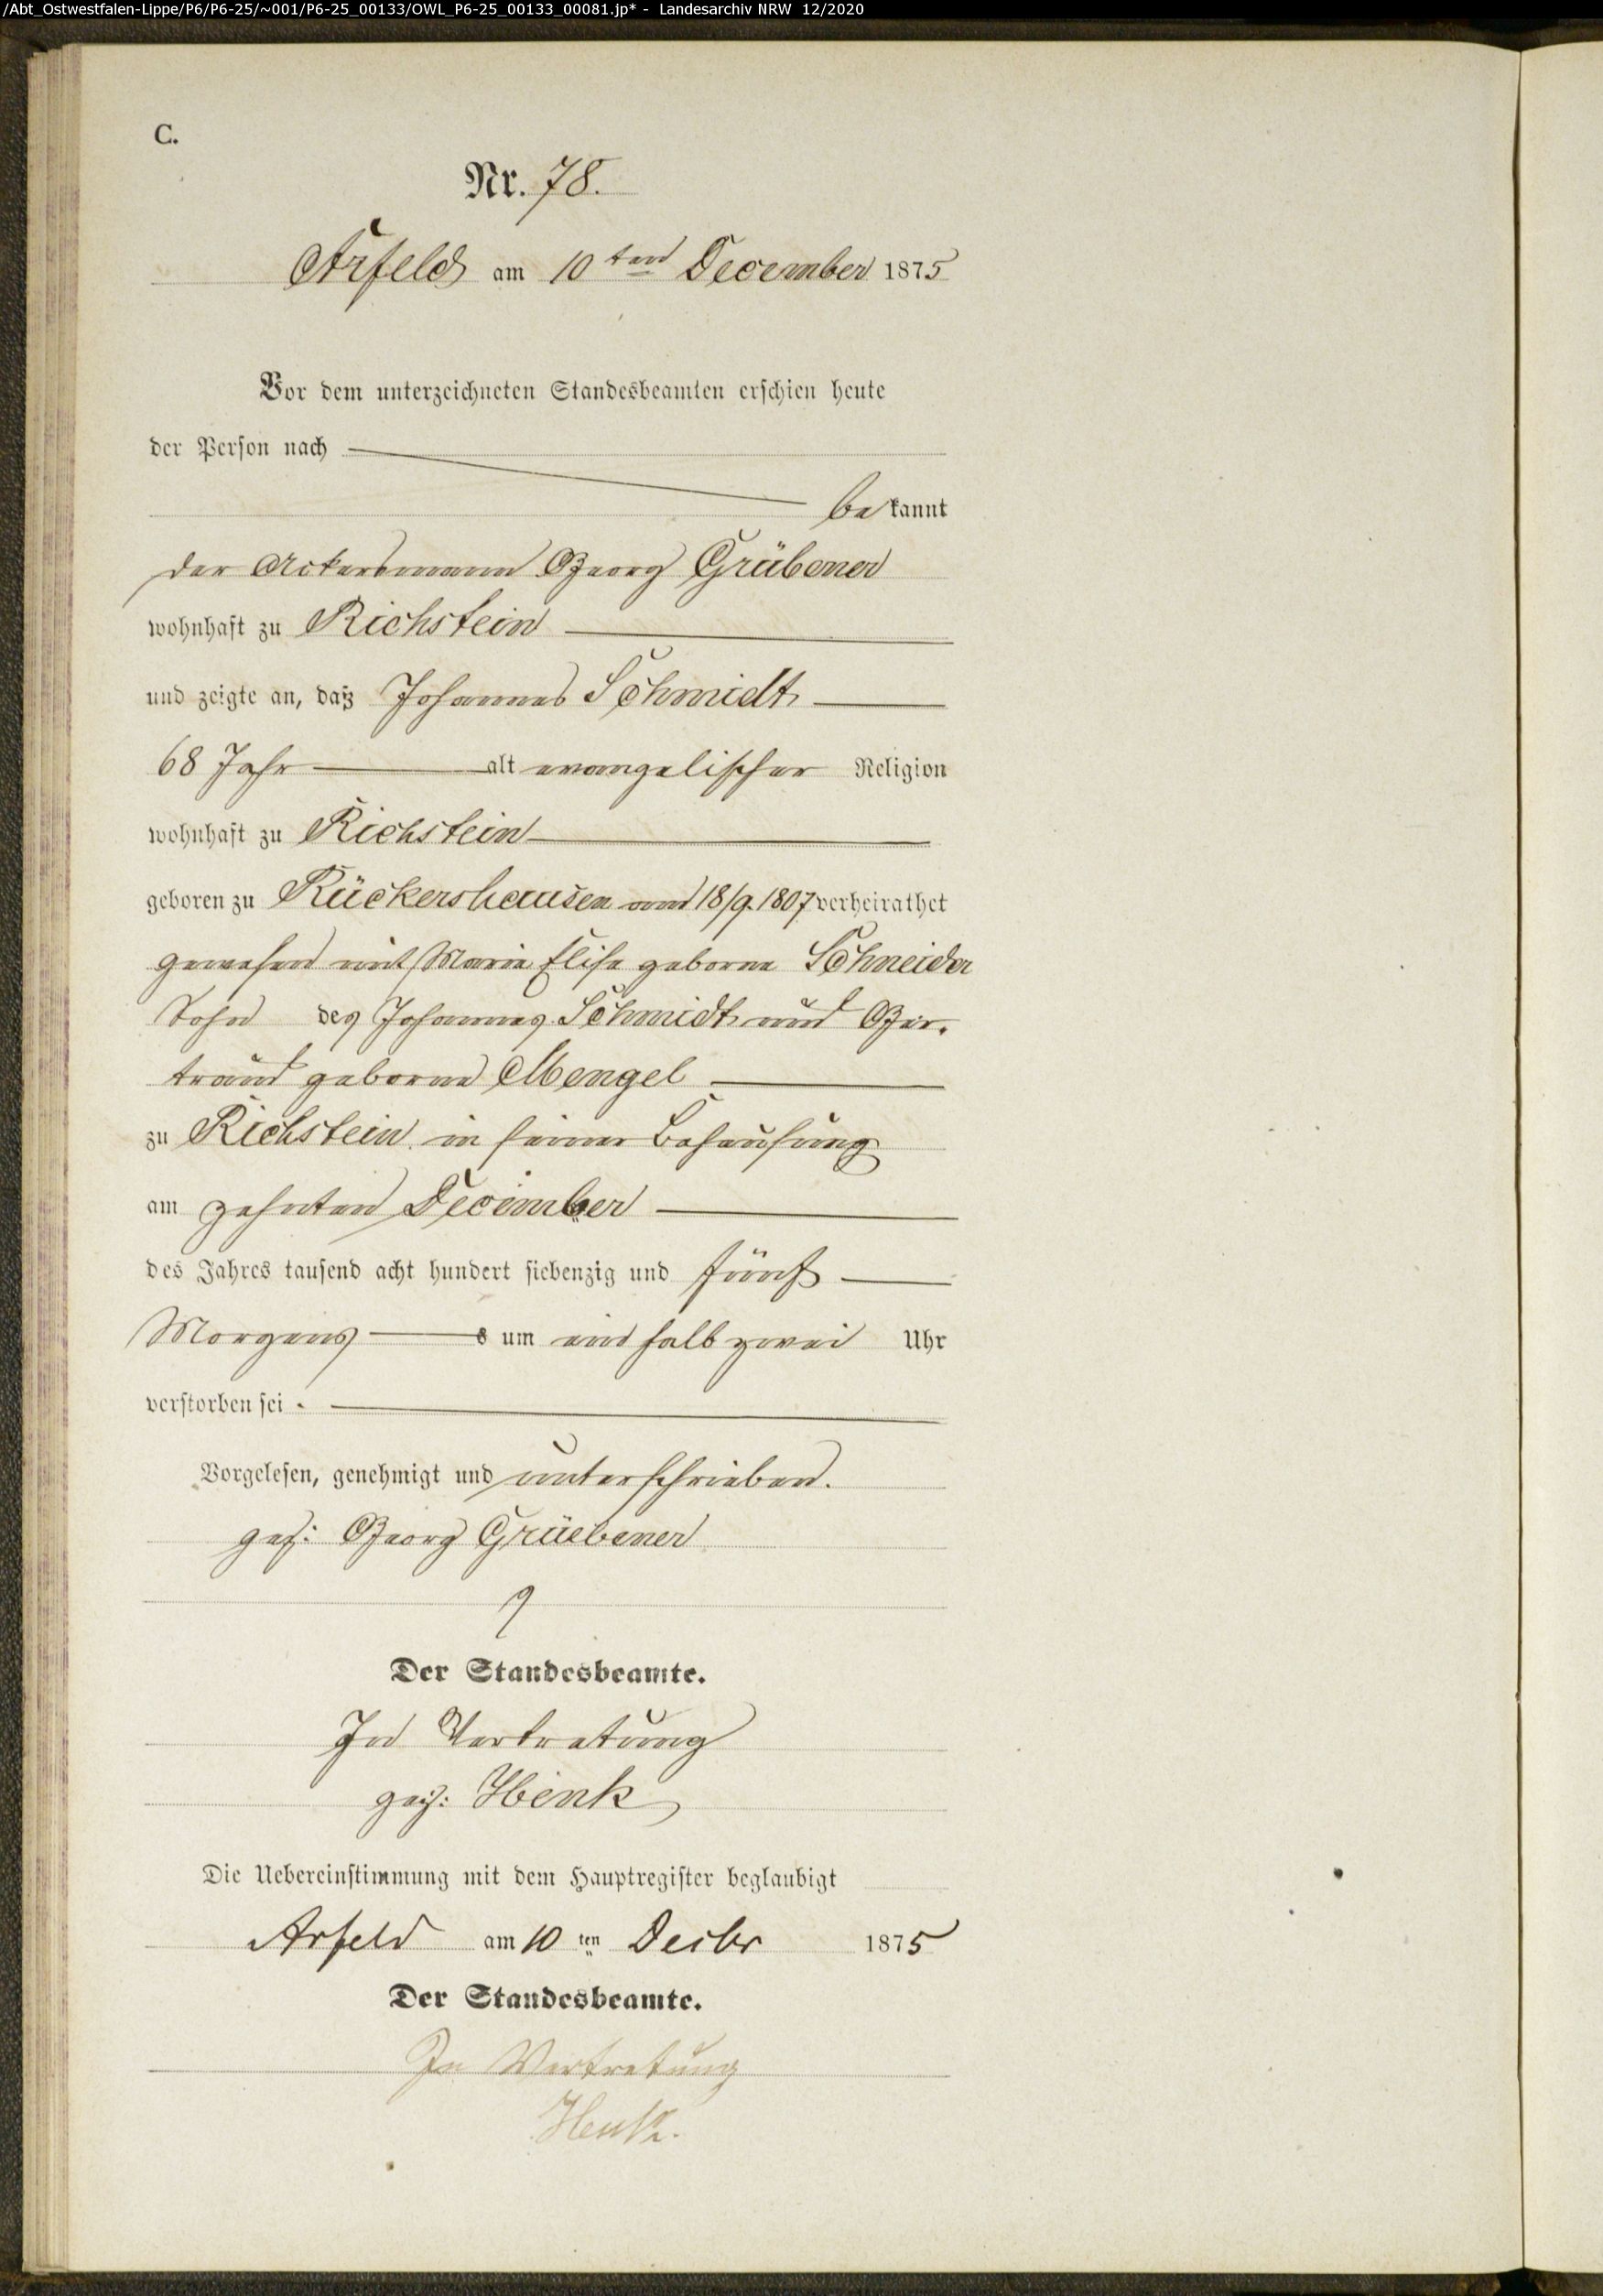 /Abt_Ostwestfalen-Lippe/P6/P6-25/~001/P6-25_00133/OWL_P6-25_00133_00081.jp* - Landesarchiv NRW 12/2020
C.
Nr. 78.
Arfeld am 10ten December 1875
Vor dem unterzeichneten Standesbeamten erschien heute
der Person nach
bekannt
der Ackersmann Georg Grübener
wohnhaft zu Richstein
und zeigte an, daß Johannes Schmidt
68 Jahr alt evangelischer Religion
wohnhaft zu Richstein
geboren zu Rückershausen am 18/9. 1807 verheirathet
gewesen mit Maria Elise geborne Schneider
Sohn des Johannes Schmidt und Ger-
traud geborne Mengel
zu Richstein in seiner Behausung
am zehnten December
des Jahres tausend acht hundert siebenzig und fünf
Morgens s um ein halb zwei Uhr
verstorben sei.
Vorgelesen, genehmigt und unterschrieben.
gez: Georg Grüebener
Der Standesbeamte.
In Vertretung
gez: Henk
Die Uebereinstimmung mit dem Hauptregister beglaubigt
Arfeld am 10ten Decbr 1875
Der Standesbeamte.
In Vertretung
Henk.